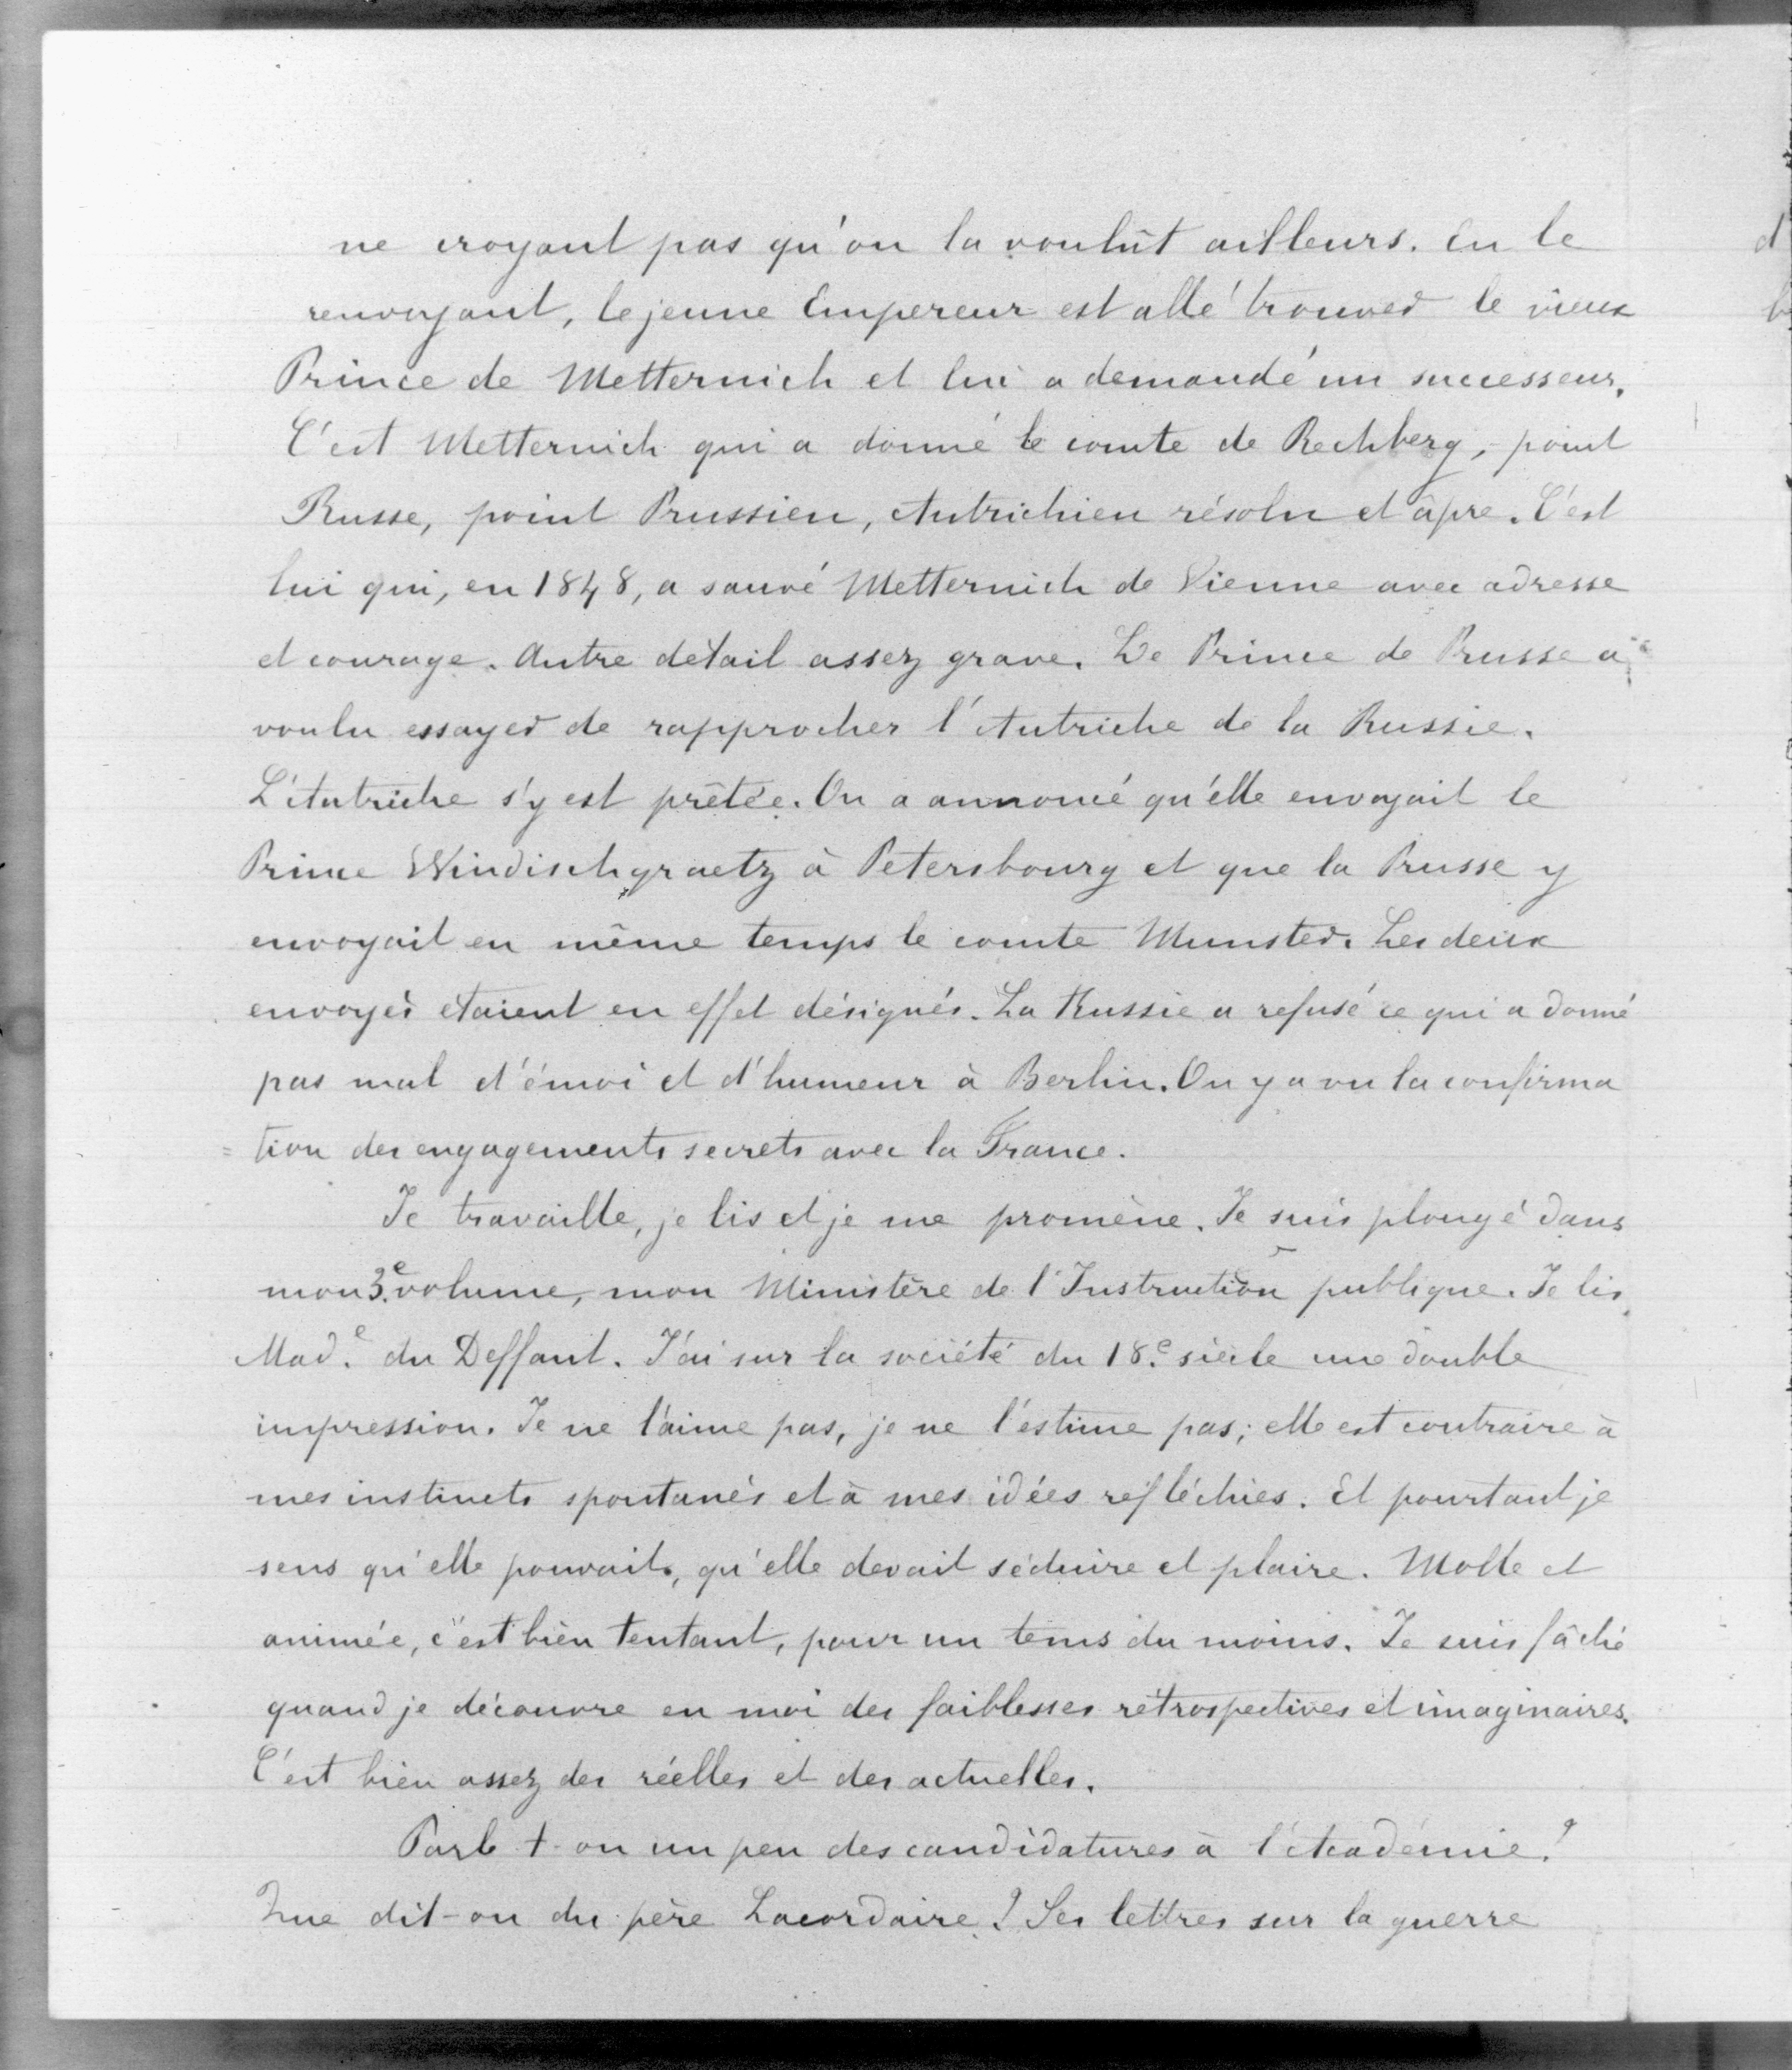 ne croyant pas qu'on la voulût ailleurs. En le
renvoyant, le jeune Empereur est allé trouver le vieux
Prince de Metternich et lui a demandé un successeur.
C'est Metternich qui a donné le comte de Rechberg, point
Russe, point Prussien, Autrichien résolu et âpre. C'est
lui qui, en 1848, a sauvé Metternich de Vienne avec adresse
et courage. Autre détail assez grave. Le Prince de Prusse a
voulu essayer de rapprocher l'Autriche de la Russie.
L'Autriche s'y est prêtée. On a annoncé qu'elle envoyait le
Prince Windischgraetz à Petersbourg et que la Prusse y
envoyait en même temps le comte Munster. Les deux
envoyés étaient en effet désignés. La Russie a refusé ce qui a donné
pas mal d'émoi et d'humeur à Berlin. On y a vu la confirma
=tion des engagements secrets avec la France.
Je travaille, je lis et je me promène. Je suis plongé dans
mon 3e volume, mon Ministère de l'Instruction publique. Je lis
Made du Deffant. J'ai sur la société du 18e siècle une double
impression. Je ne l'aime pas, je ne l'estime pas; elle est contraire à
mes instincts spontanés et à mes idées réfléchies. Et pourtant je
sens qu'elle pouvait, qu'elle devait séduire et plaire. Molle et
animée, c'est bien tentant, pour un tems du moins. Je suis fâché
quand je découvre en moi des faiblesses rétrospectives et imaginaires.
C'est bien assez des réelles et des actuelles.
Parle t-on un peu des candidatures à l'Académie?
Que dit-on du père Lacordaire? Ses lettres sur la guerre